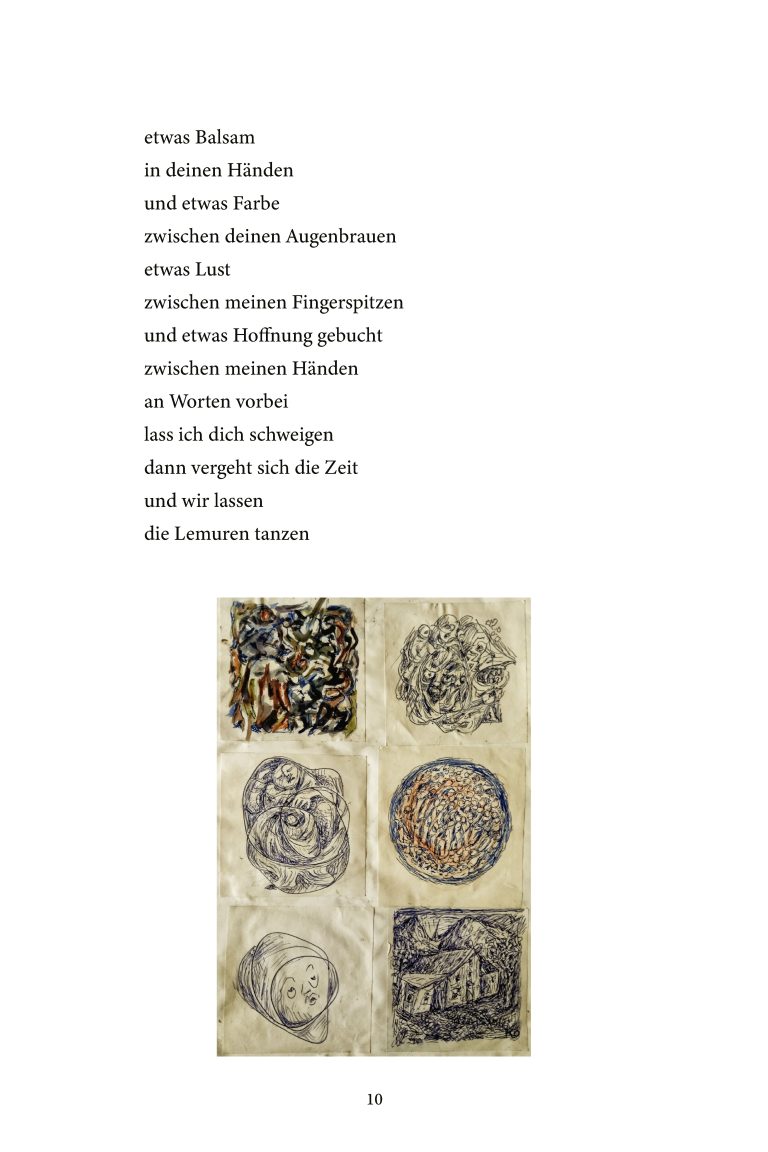 etwas Balsam
in deinen Händen
und etwas Farbe
zwischen deinen Augenbrauen
etwas Lust
zwischen meinen Fingerspitzen
und etwas Hoffnung gebucht
zwischen meinen Händen
an Worten vorbei
lass ich dich schweigen
dann vergeht sich die Zeit
und wir lassen
die Lemuren tanzen
10